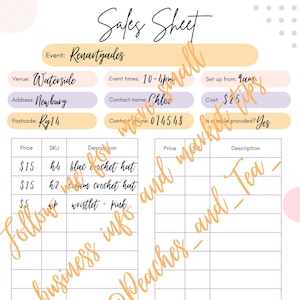 Sales Sheet
Event: Renartgades
Venue: Waterside
Event times: 10-4pm
Set up from: 9am
Address: Newbury
Contact name: Chloe
Cost: $25
Postcode: Rg14
Contact phone: 074548
Is a table provided? Yes
Price SKU Description Price SKU Description
$15 h4 blue crochet hat
$15 h2 cream crochet hat
$5 wp wristlet - pink
Follow me for more small
business info and market tips
@Peaches_and_Tea_